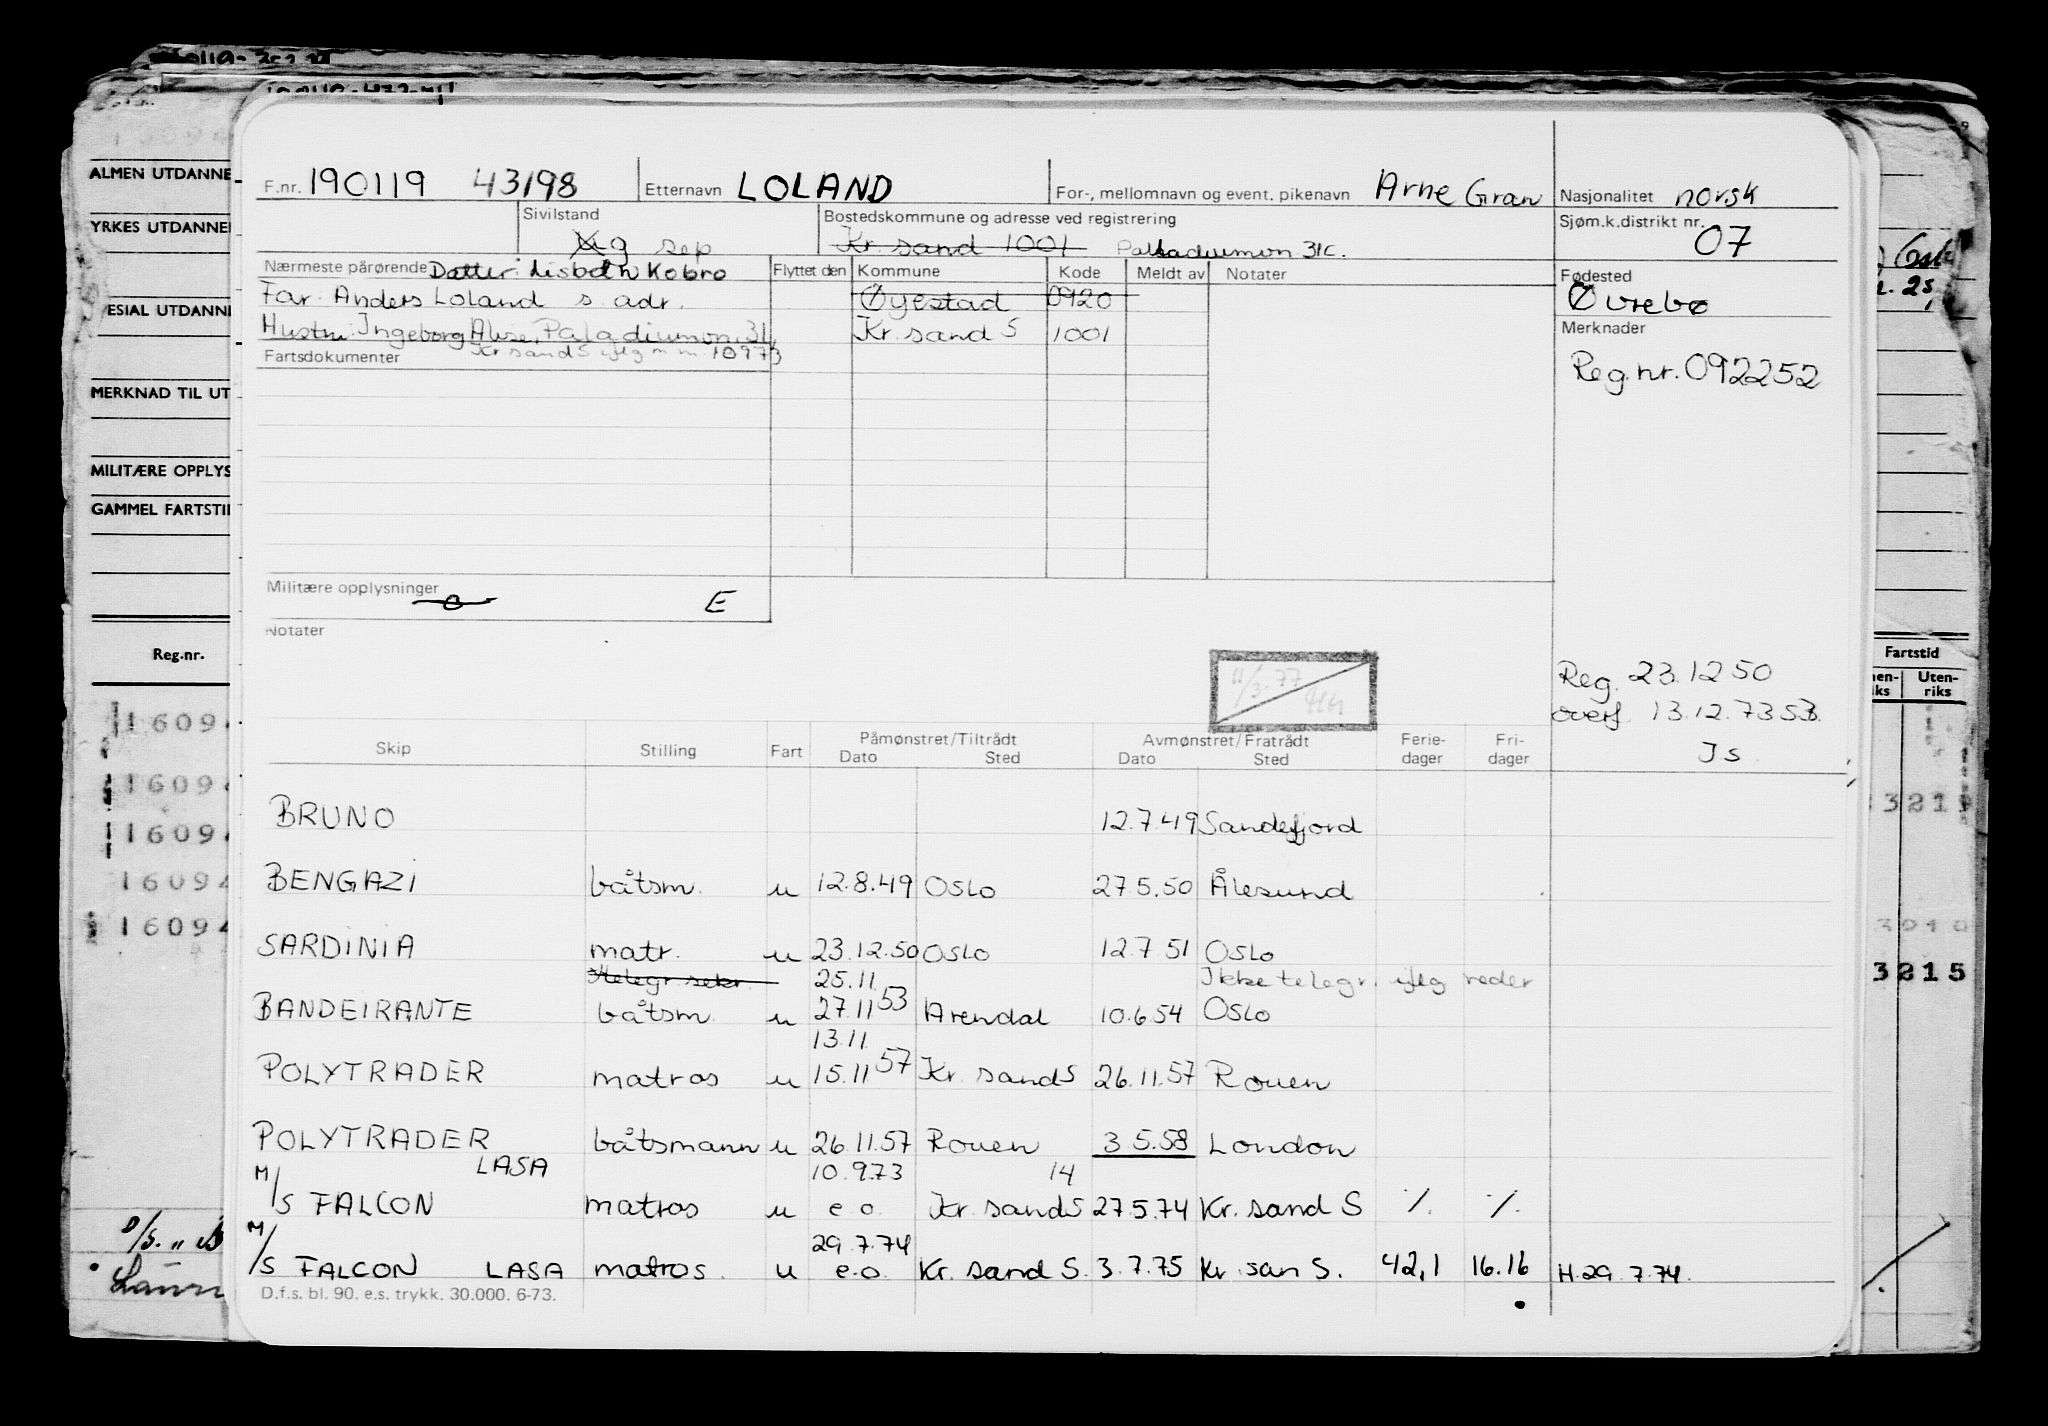 ALMEN UTDANNE
YRKES UTDANNE
ESIAL UTDANN
MERKNAD TIL UT
MILITÆRE OPPLYS
GAMMEL FARTSTI
Reg.nr.
1609
1609
1609
1609
1609
D/S.
F.nr. 190119 43198 Etternavn LOLAND For-, mellomnavn og event. pikenavn Arne Gran Nasjonalitet norsk
Sivilstand g sep Bostedskommune og adresse ved registrering Kr. sand 1001 Palladiumon 31c. Sjøm.k.distrikt nr. 07
Nærmeste pårørende Datter: Lisbeth Kobro Flyttet den Kommune Kode Meldt av Notater Fødested
Far: Anders Loland s. adr. Øyestad 0920 Øvrebø
Hustru: Ingeborg Alise, Paladiumon, 31 Kr. sand S 1001 Merknader
Fartsdokumenter Kr sand S iflg m.m. 10973
Reg.nr. 092252
Militære opplysninger E
Notater
11/3.77
Reg. 23.12 50
overf. 13.12.73 SB.
JS
Skip Stilling Fart Påmønstret/Tiltrådt Dato Sted Avmønstret/Fratrådt Dato Sted Ferie-dager Fri-dager
BRUNO 12.7.49 Sandefjord
BENGAZI båtsm. u 12.8.49 Oslo 27 5.50 Ålesund
SARDINIA matr. u 23.12.50 Oslo 12.7 51 Oslo
telegr. sekr. 25.11 Ikke telegr. iflg reder
BANDEIRANTE båtsm. u 27.11 53 Arendal 10.6.54 Oslo
13.11
POLYTRADER matros u 15.11 57 Kr. sand S 26.11.57 Rouen
POLYTRADER båtsmann u 26.11.57 Rouen 3 5.58 London
LASA 10.9.73 14
M/S FALCON matros u e.o. Kr. sand S 27.5.74 Kr. sand S ./. ./.
29.7.74
M/S FALCON LASA matros. u e.o. Kr. sand S. 3.7.75 Kr. san S. 42,1 16.16 H.29.7.74.
D.f.s. bl. 90. e.s. trykk. 30.000. 6-73.
Fartstid
Uten-riks
3215